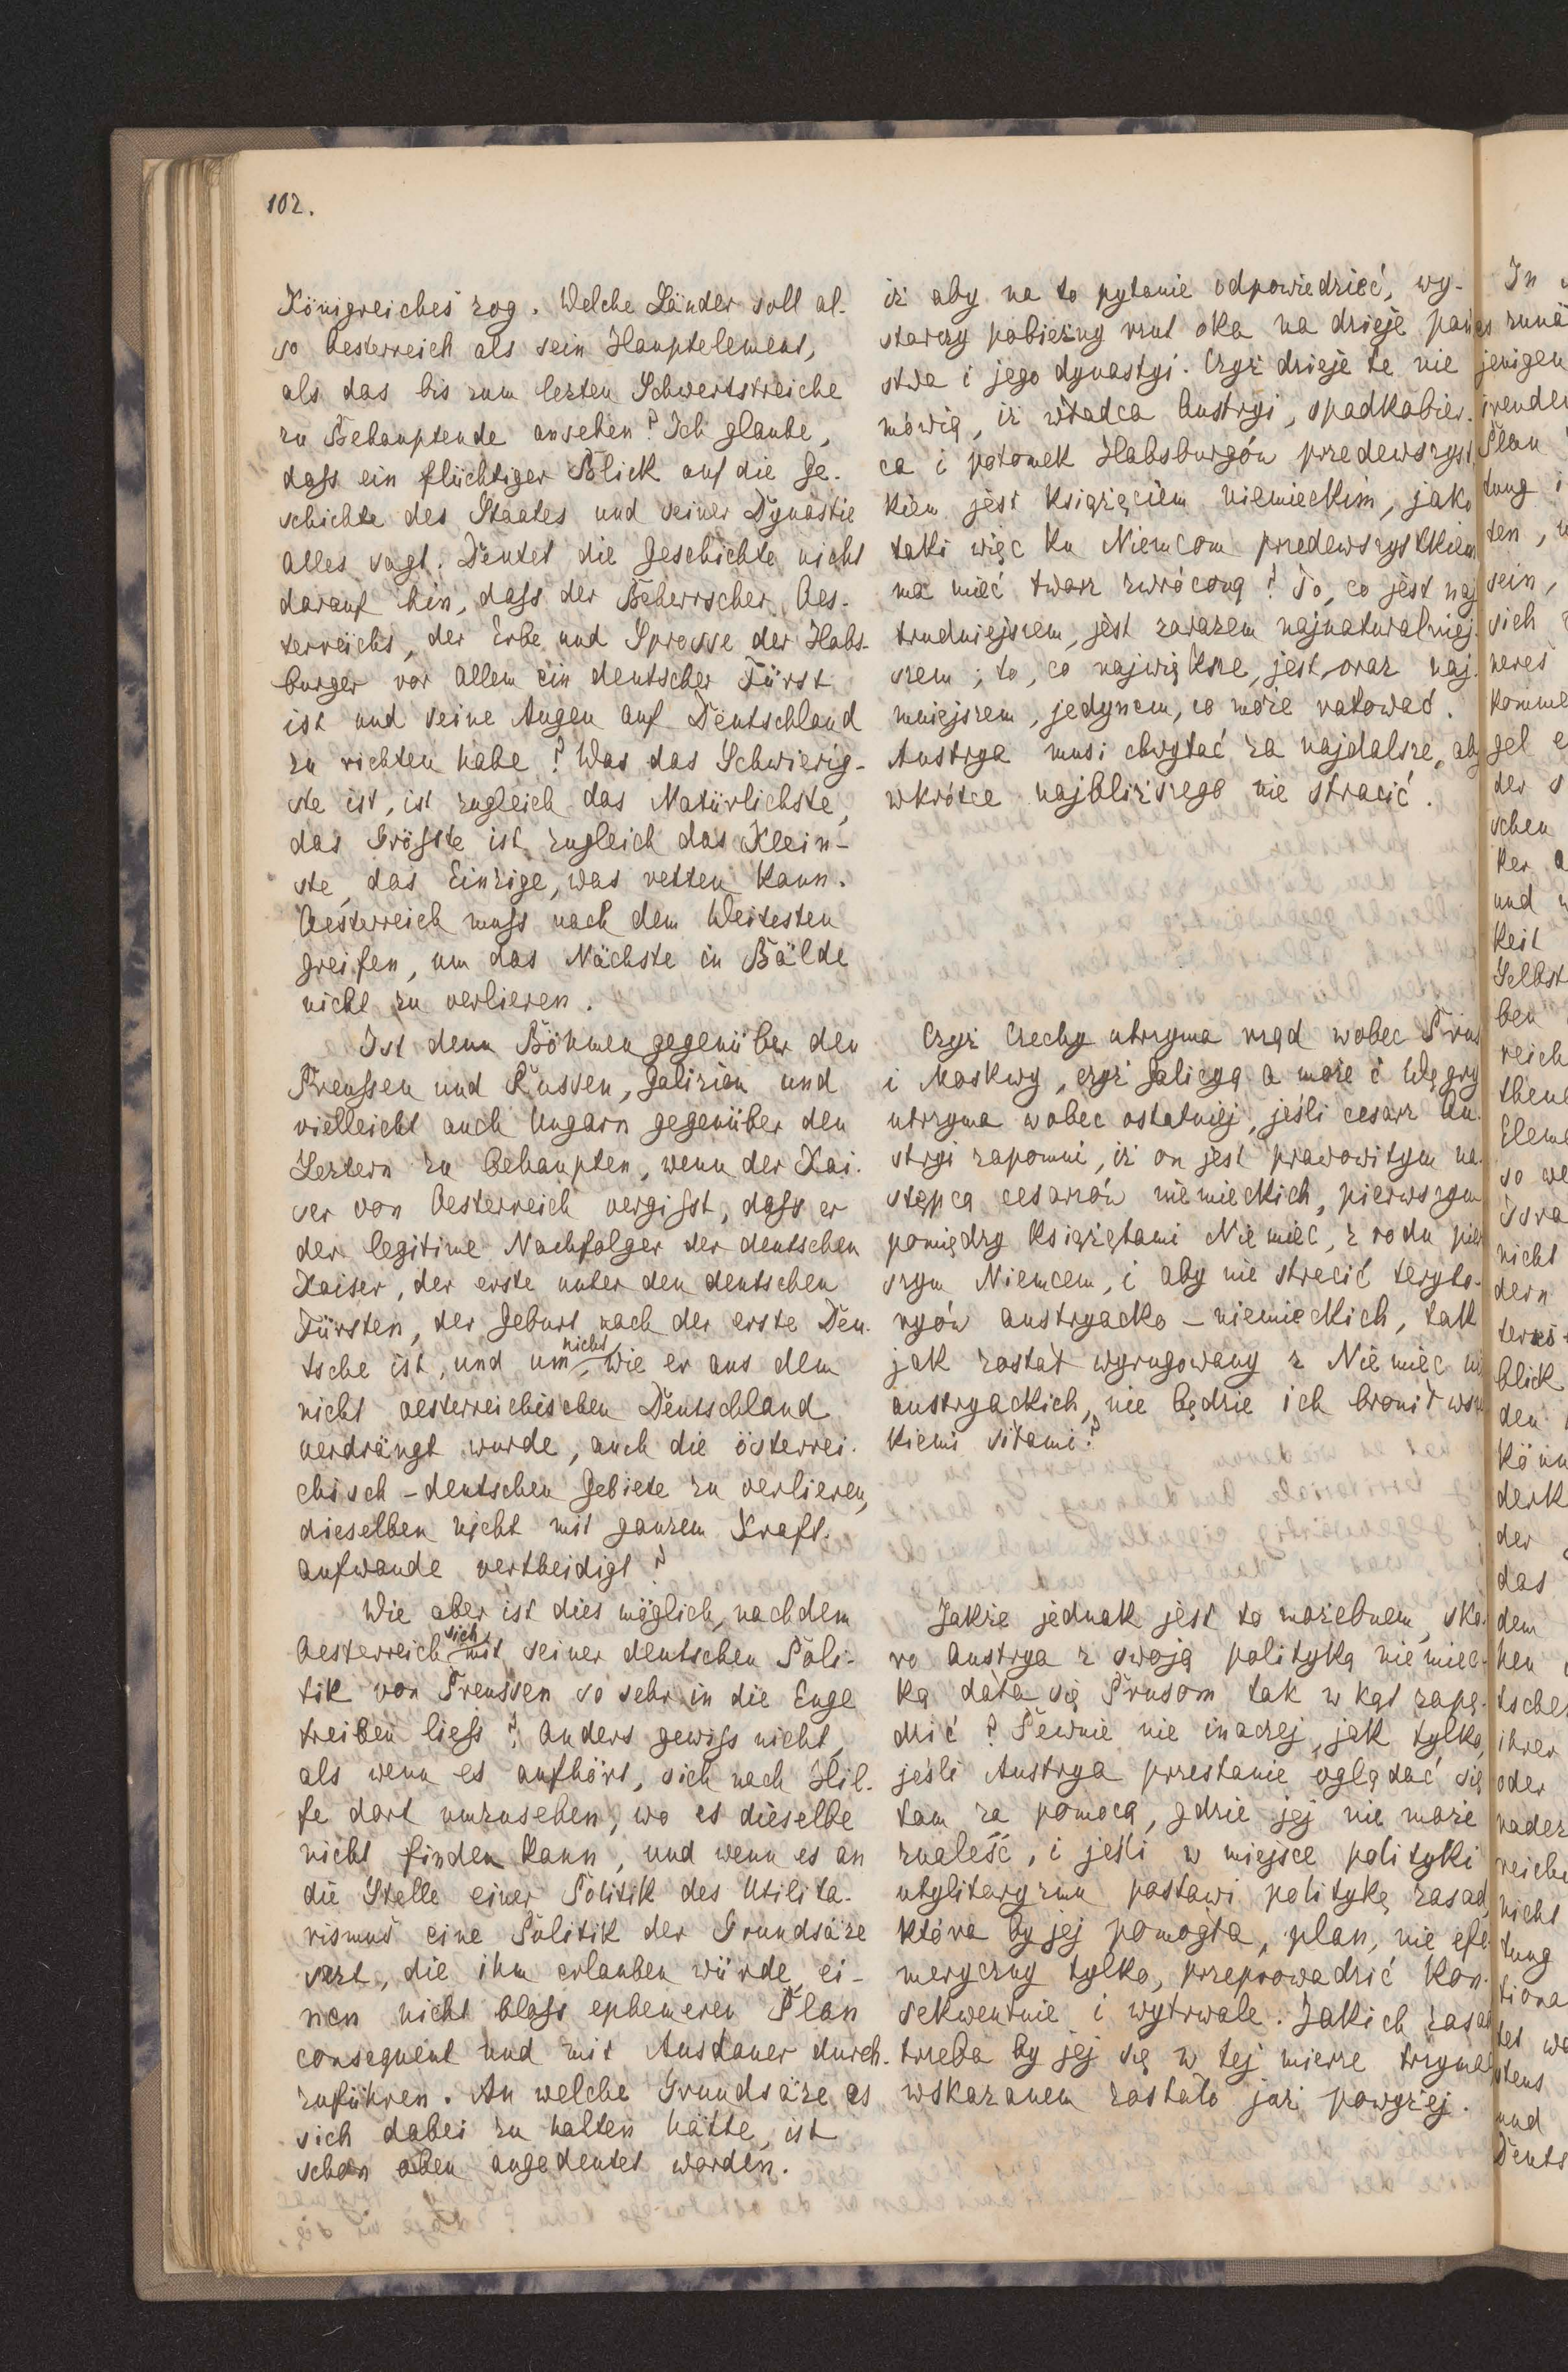 102.
Königreiches zog. Welche Länder soll al-
so Oesterreich als sein Hauptelement,
als das bis zum lezten Schwertstreiche
zu Behauptende ansehen? Ich glaube,
dass ein flüchtiger Blick auf die Ge-
schichte des Staates und seiner Dynastie
alles sagt. Deutet die Geschichte nicht
darauf hin, dass der Beherrscher Oes-
terreichs, der Erbe und Sprosse der Habs-
burger vor allem ein deutscher Fürst
ist und seine Augen auf Deutschland
zu richten habe? Was das Schwierig-
ste ist, ist zugleich das Natürlichste,
das Grösste ist zugleich das Klein-
ste, das Einzige, was retten kann.
Oesterreich muss nach dem Weitesten
greifen, um das Nächste in Bälde
nicht zu verlieren.
Ist denn Böhmen gegenüber den
Preussen und Russen, Galizien und
vielleicht auch Ungarn gegenüber den
Leztern zu behaupten, wenn der Kai-
ser von Oesterreich vergisst, dass er
der legitime Nachfolger der deutschen
Kaiser, der erste unter den deutschen
Fürsten, der Geburt nach der erste Deu-
tsche ist, und um nicht, wie er aus dem
nicht oesterreichischen Deutschland
verdrängt wurde, auch die österrei-
chisch-deutschen Gebiete zu verlieren,
dieselben nicht mit ganzem Kraft-
aufwande vertheidigt?
Wie aber ist dies möglich, nachdem
Oesterreich sich mit seiner deutschen Poli-
tik von Preussen so sehr in die Enge
treiben liess? Anders gewiss nicht,
als wenn es aufhört, sich nach Hil-
fe dort umzusehen, wo es dieselbe
nicht finden kann, und wenn es an
die Stelle einer Politik des Utilita-
rismus eine Politik der Grundsäze
sezt, die ihm erlauben würde, ei-
nen nicht bloss ephemeren Plan
consequent und mit Ausdauer durch-
zuführen. An welche Grundsäze es
sich dabei zu halten hätte, ist
schon oben angedeutet worden.
iż aby na to pytanie odpowiedzieć, wy-
starczy pobieżny rzut oka na dzieje pań
stwa i jego dynastyi. Czyż dzieje te nie
mówią, iż władca Austryi, spadkobier-
ca i potomek Habsburgów przedewszyst
kiem jest księciem niemieckim, jako
taki więc ku Niemcom przedewszystkiem
ma mieć twarz zwróconą? To, co jest naj
trudniejszem, jest zarazem najnaturalniej-
szem; to, co największe, jest oraz naj-
mniejszem, jedynem, co może ratować.
Austrya musi chwytać za najdalsze, aby
wkrótce najbliższego nie stracić.
Czyż Czechy utrzyma rząd wobec Prus
i Moskwy, czyż Galicyą a może i Węgry
utrzyma wobec ostatniej, jeśli cesarz Au-
stryi zapomni, iż on jest prawowitym na-
stępcą cesarzów niemieckich, pierwszym
pomiędzy książętami Niemiec, z rodu pier
szym Niemcem, i aby nie stracić teryto-
ryów austryacko-niemieckich, tak
jak został wyrugowany z Niemiec ni
austryackich, nie będzie ich bronił wsz
kiemi siłami?
Jakże jednak jest to możebnem, sko-
ro Austrya z swoją polityką niemiec-
ką dała się Prusom tak w kąt zapę-
dzić? Pewnie nie inaczej, jak tylko,
jeśli Austrya przestanie oglądać się
tam za pomocą, gdzie jej nie może
znaleść, i jeśli w miejsce polityki
utylitaryzmu postawi politykę zasad,
która by jej pomogła, plan, nie efe-
meryczny tylko, przeprowadzić kon-
sekwentnie i wytrwale. Jakich zasad
trzeba by jej się w tej mierze trzymać
wskazanem zostało już powyżej.
In
zunä
jenigen
Plan
tung i
ten,
sein,
sich
neres
komme
gel e
der s
schen
ker a
und
keit
Selbst
ben
reich
thene
Eleme
so we
nicht
dern
blick
den
könn
derk
der
das
dem
hen
tscher
ihrer
oder
reiche
nicht
tung
tiona
tet we
stens
und
Deuts